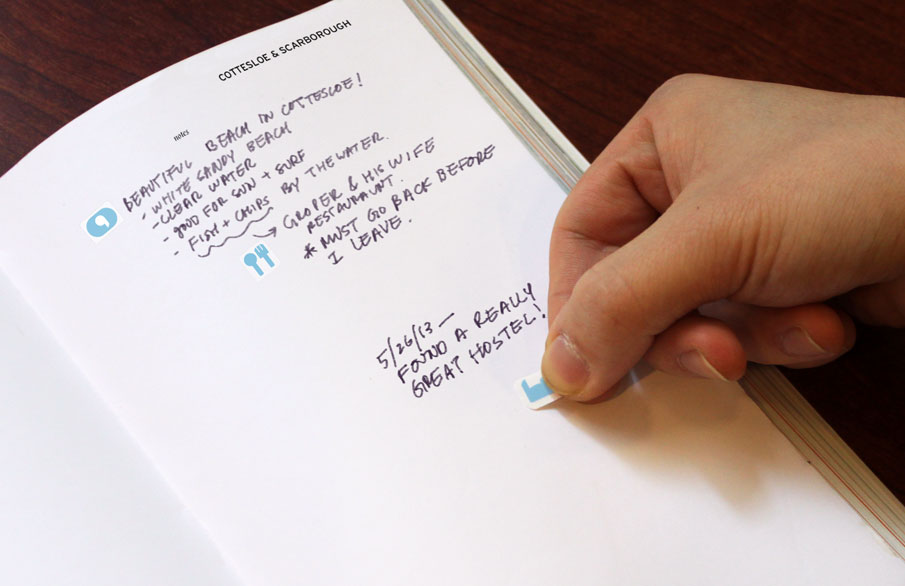 COTTESLOE & SCARBOROUGH
notes
BEAUTIFUL BEACH IN COTTESLOE!
- WHITE SANDY BEACH
- CLEAR WATER
- GOOD FOR SUN + SURF
- FISH + CHIPS BY THE WATER.
→ GROPER & HIS WIFE
RESTAURAUNT.
* MUST GO BACK BEFORE
I LEAVE.
5/26/13 —
FOUND A REALLY
GREAT HOSTEL!